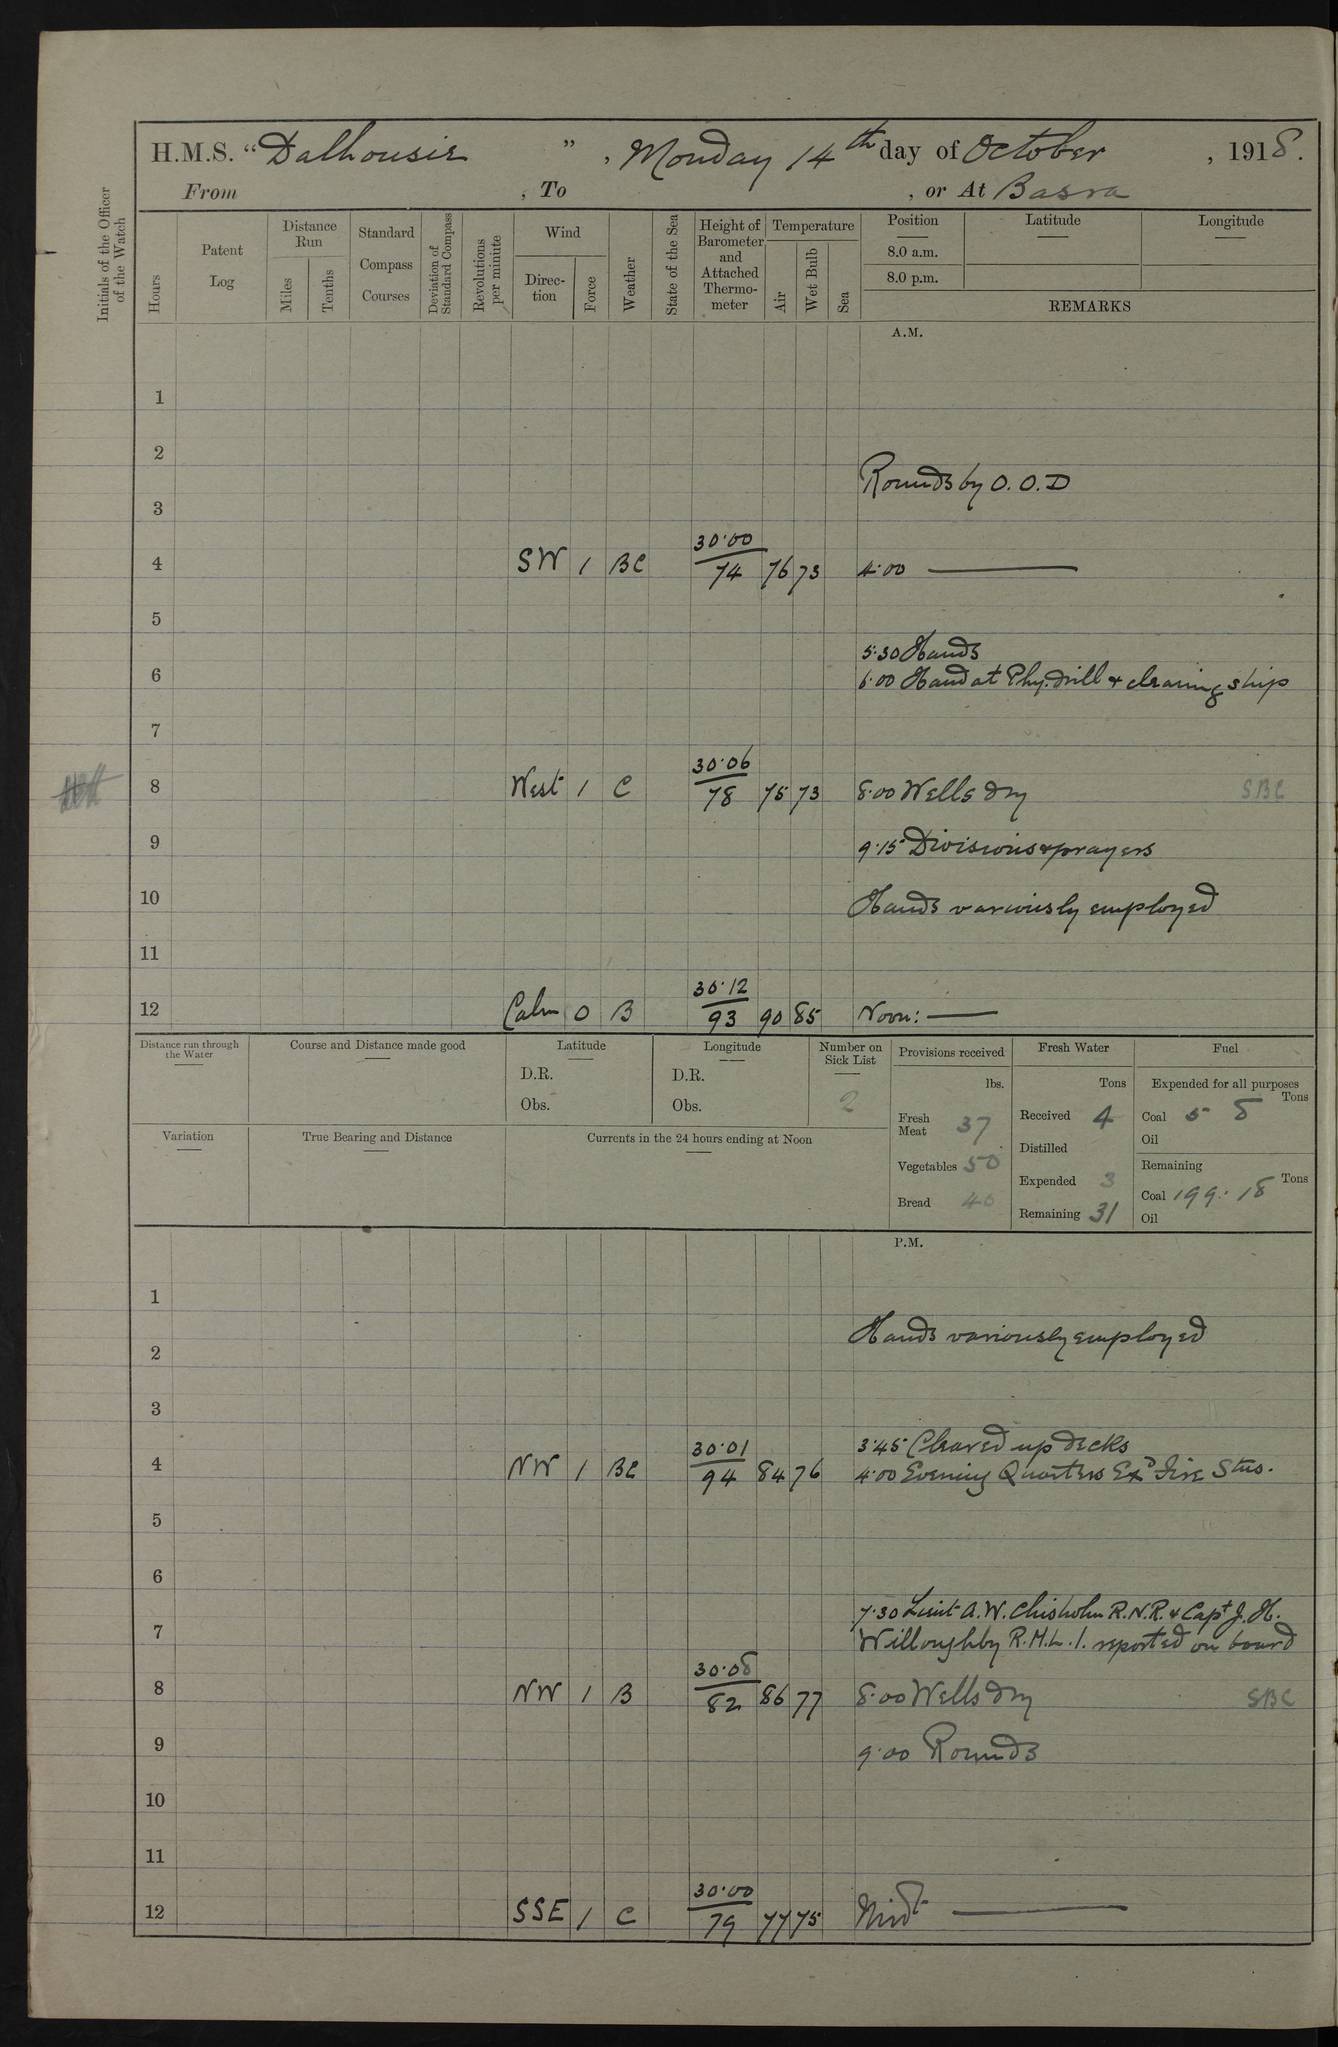 H.M.S. "Dalhousie", Monday 14th day of October, 1918.
From , To , or At Basra
Initials of the Officer of the Watch
Hours
Patent Log
Distance Run
Miles
Tenths
Standard Compass Courses
Deviation of Standard Compass
Revolutions per miniute
Wind
Direction
Force
Weather
State of the Sea
Height of Barometer and Attached Thermometer
Temperature
Air
Wet Bulb
Sea
Position Latitude Longitude
8.0 a.m.
8.0 p.m.
REMARKS
A.M.
1
2
Rounds by O.O.D
3
4 SW 1 BC 30.00 74 76 73 4.00 ———
5
5.30 Hands
6 6.00 Hand at Phy. drill & cleaning ship
7
8 West 1 C 30.06 78 75 73 8.00 Wells dry SBC
9 9.15 Divisions & prayers
10 Hands variously employed
11
12 Calm 0 B 30.12 93 90 85 Noon: ——
Distance run through the Water
Course and Distance made good
Latitude
D.R.
Obs.
Longitude
D.R.
Obs.
Number on Sick List
2
Provisions received
lbs.
Fresh Meat 37
Vegetables 50
Bread 40
Fresh Water
Tons
Received 4
Distilled
Expended 3
Remaining 31
Fuel
Expended for all purposes
Tons
Coal 5 8
Oil
Remaining
Tons
Coal 199.18
Oil
Variation
True Bearing and Distance
Currents in the 24 hours ending at Noon
P.M.
1
Hands variously employed
2
3
3.45 Cleared up decks
4 NW 1 BC 30.01 94 84 76 4.00 Evening Quarters Exd Fire Stns.
5
6
7.30 Lieut A.W. Chisholm R.N.R. & Capt J.H.
7 Willoughby R.M.L.I. reported on board
8 NW 1 B 30.08 82 86 77 8.00 Wells dry SBC
9 9.00 Rounds
10
11
12 SSE 1 C 30.00 79 77 75 Midt ———